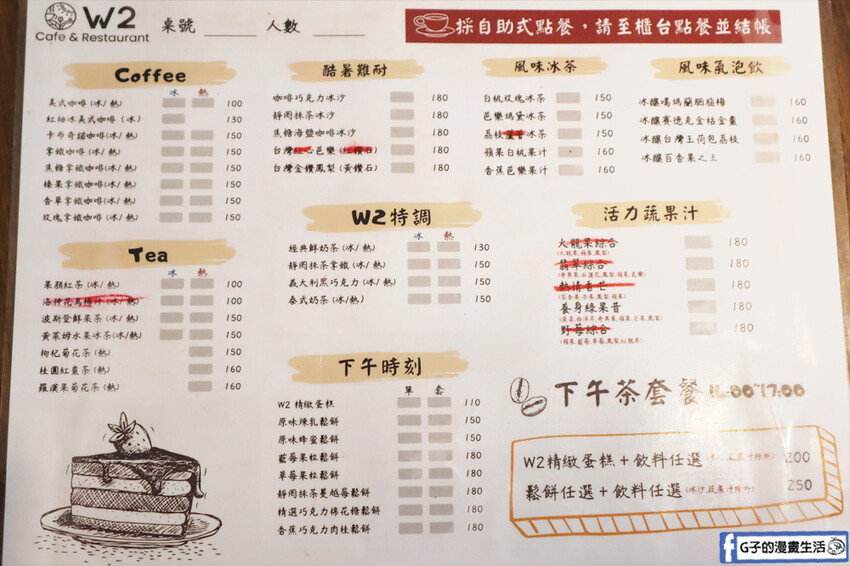 W2
Cafe & Restaurant
桌號 人數
採自助式點餐,請至櫃台點餐並結帳
Coffee
冰 熱
美式咖啡(冰/熱) 100
紅柚冰美式咖啡(冰) 130
卡布奇諾咖啡(冰/熱) 150
拿鐵咖啡(冰/熱) 150
焦糖拿鐵咖啡(冰/熱) 150
榛果拿鐵咖啡(冰/熱) 150
香草拿鐵咖啡(冰/熱) 150
玫瑰拿鐵咖啡(冰/熱) 150
Tea
冰 熱
果顏紅茶(冰/熱) 100
洛神花烏梅汁(冰/熱) 100
波斯登鮮果茶(冰/熱) 150
黃萊姆水果冰茶(冰/熱) 150
枸杞菊花茶(熱) 150
桂圓紅棗茶(熱) 160
羅漢果菊花茶(熱) 160
酷暑難耐
咖啡巧克力冰沙 180
靜岡抹茶冰沙 180
焦糖海鹽咖啡冰沙 180
台灣紅心芭樂(紅鑽石) 180
台灣金鑽鳳梨(黃鑽石) 180
W2特調
冰 熱
經典鮮奶茶(冰/熱) 130
靜岡抹茶拿鐵(冰/熱) 150
義大利黑巧克力(冰/熱) 150
泰式奶茶(冰/熱) 150
下午時刻
單 套
W2 精緻蛋糕 110
原味煉乳鬆餅 150
原味蜂蜜鬆餅 150
藍莓果粒鬆餅 180
草莓果粒鬆餅 180
靜岡抹茶蔓越莓鬆餅 180
精選巧克力棉花糖鬆餅 180
香蕉巧克力肉桂鬆餅 180
風味冰茶
白桃玫瑰冰茶 150
芭樂瑪黛冰茶 150
荔枝蘆薈冰茶 150
蘋果白桃果汁 160
香蕉芭樂果汁 160
風味氣泡飲
冰釀噶瑪蘭胭脂梅 160
冰釀賽德克金桔金棗 160
冰釀台灣玉荷包荔枝 160
冰釀百香果之王 160
活力蔬果汁
火龍果綜合 180
(火龍果,蘋果,鳳梨)
翡翠綜合 180
熱情香芒 180
(百香果,芒果,鳳梨,蘋果)
養身綠果昔 180
野莓綜合 180
下午茶套餐 14:00~17:00
W2精緻蛋糕+飲料任選(冰沙,蔬果汁除外) 200
鬆餅任選+飲料任選(冰沙,蔬果汁除外) 250
G子的漫畫生活